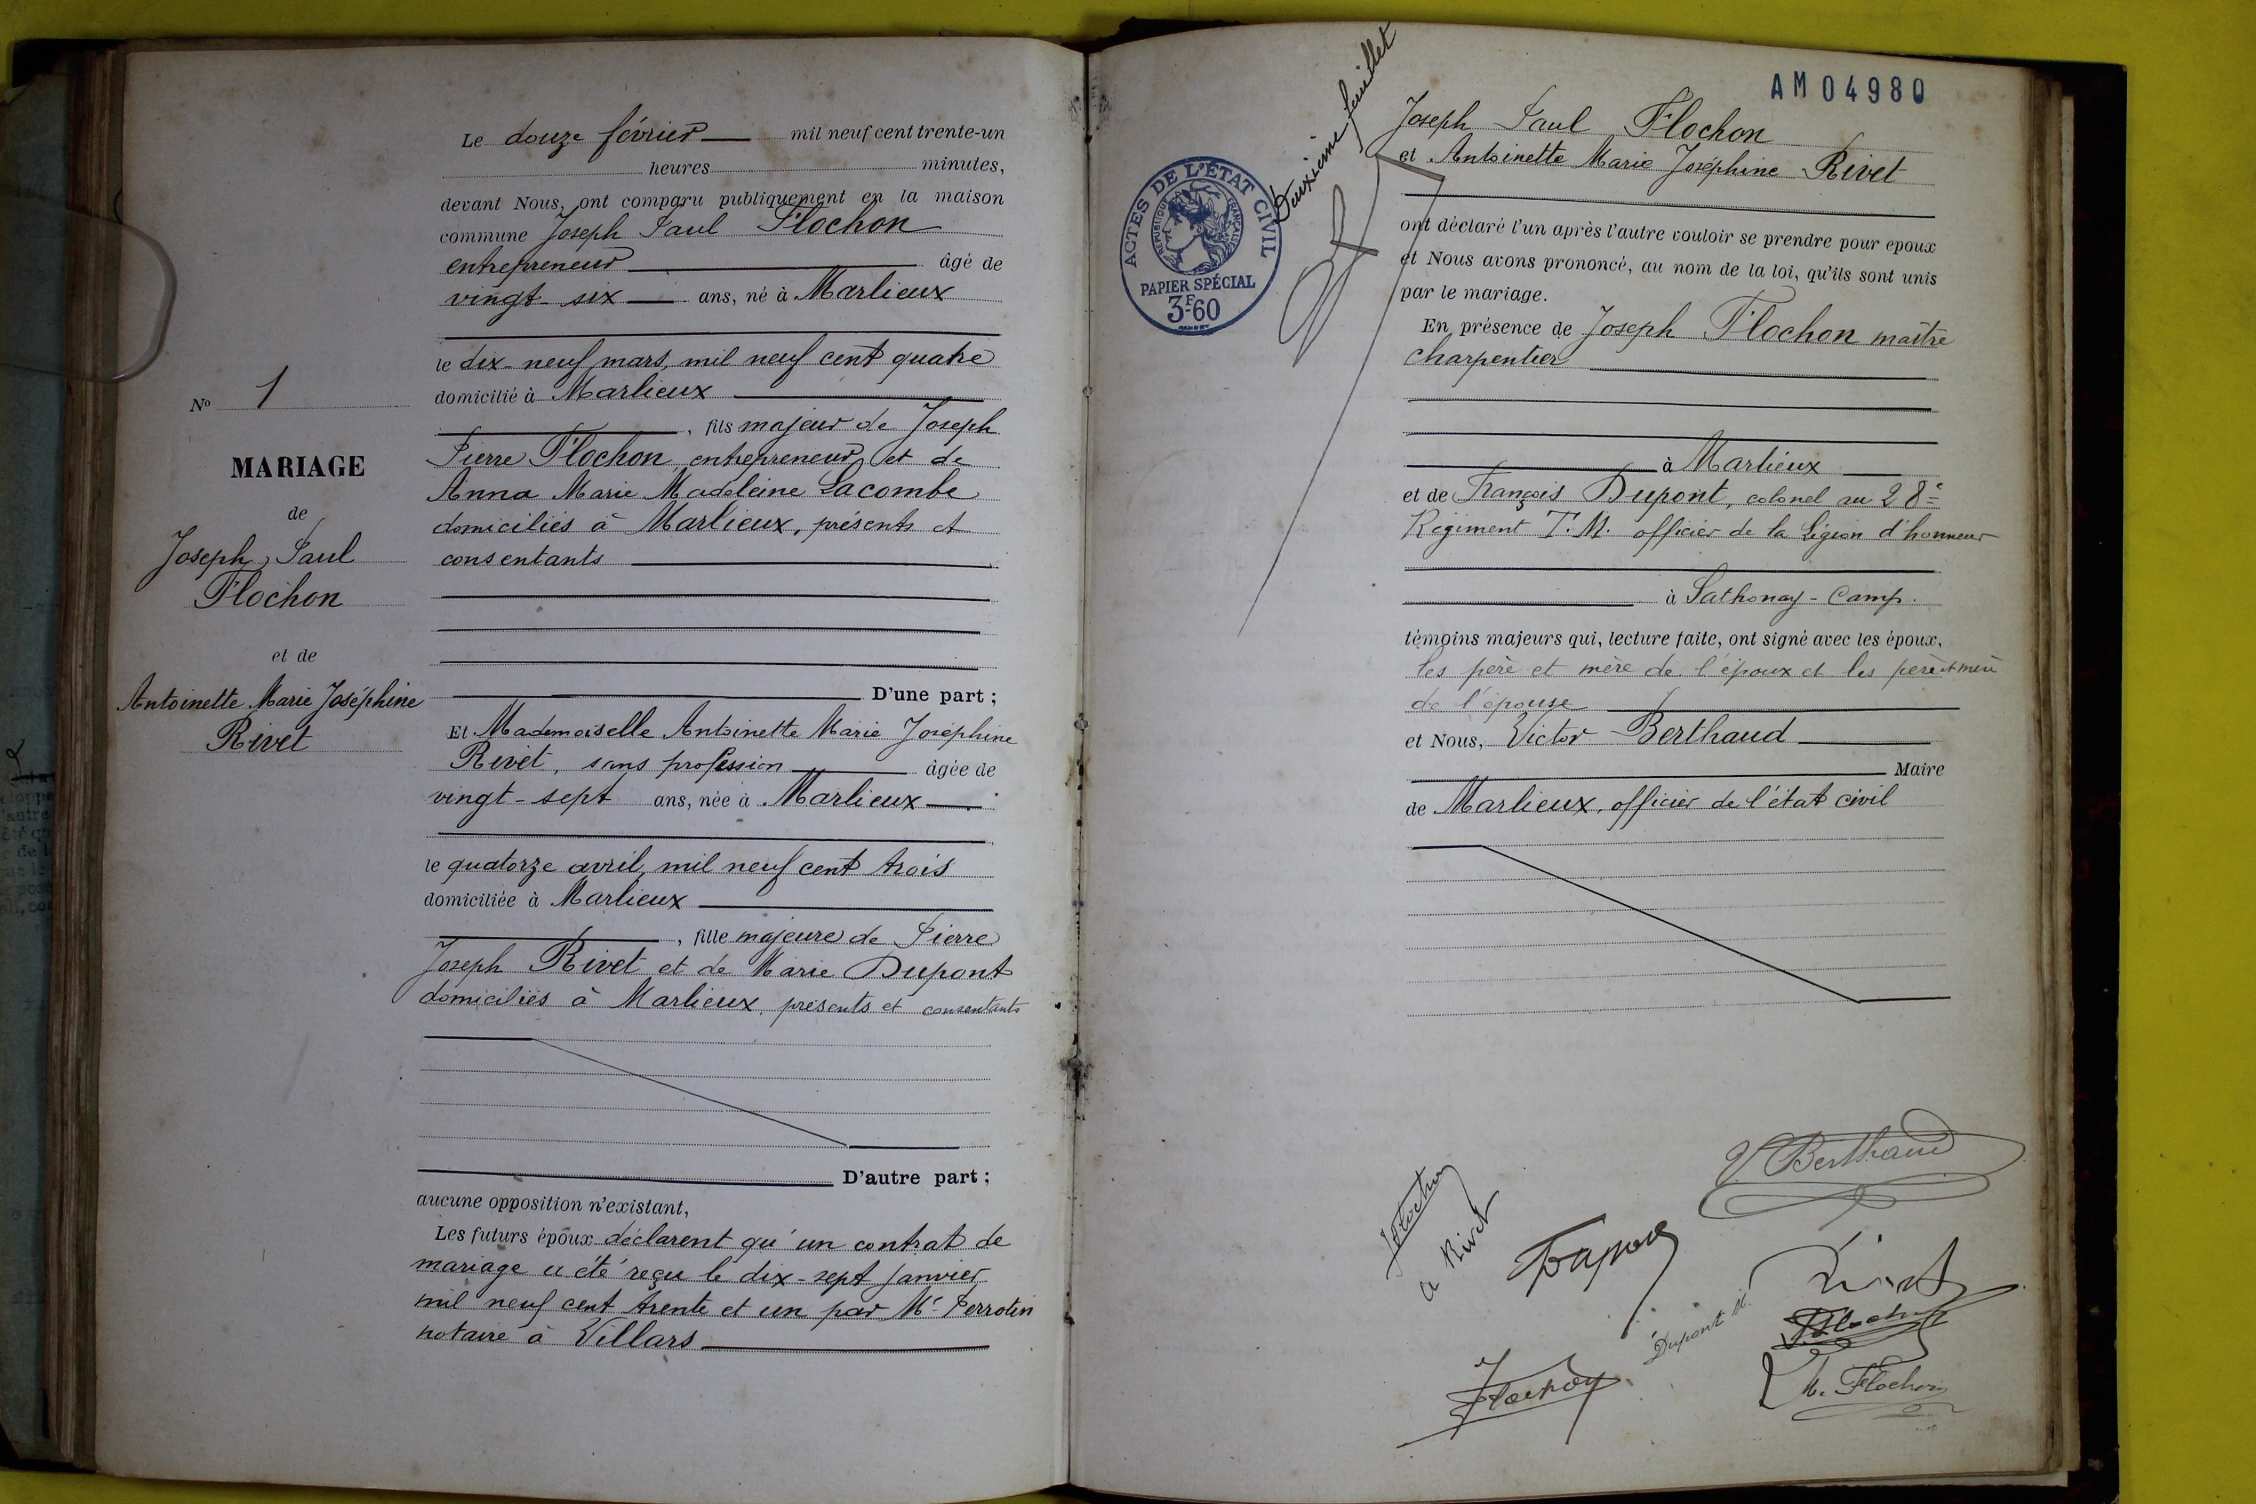 Le douze février mil neuf cent trente-un
heures minutes,
devant Nous, ont comparu publiquement en la maison
commune Joseph Paul Flochon
entrepreneur âgé de
vingt-six ans, né à Marlieux
le dix-neuf mars, mil neuf cent quatre
domicilié à Marlieux
, fils majeur de Joseph
Pierre Flochon entrepreneur et de
Anna Marie Madeleine Lacombe
domiciliés à Marlieux, présents et
consentants
D'une part ;
Et Mademoiselle Antoinette Marie Joséphine
Rivet, sans profession âgée de
vingt-sept ans, née à Marlieux
le quatorze avril, mil neuf cent trois
domiciliée à Marlieux
, fille majeure de Pierre
Joseph Rivet et de Marie Dupont
domiciliés à Marlieux, présents et consentants
D'autre part ;
aucune opposition n'existant,
Les futurs époux déclarent qu'un contrat de
mariage a été reçu le dix-sept janvier
mil neuf cent trente et un par Me Perrotin
notaire à Villars
No 1
MARIAGE
de
Joseph, Paul
Flochon
et de
Antoinette Marie Joséphine
Rivet
AM04980
Deuxième feuillet
ACTES DE L'ÉTAT CIVIL
RÉPUBLIQUE FRANÇAISE
PAPIER SPÉCIAL
3F60
Joseph Paul Flochon
et Antoinette Marie Joséphine Rivet
ont déclaré l'un après l'autre vouloir se prendre pour époux
et Nous avons prononcé, au nom de la loi, qu'ils sont unis
par le mariage.
En présence de Joseph Flochon maître
charpentier
à Marlieux
et de François Dupont, colonel au 28e
Régiment T.M. officier de la Légion d'honneur
à Sathonay-Camp.
témoins majeurs qui, lecture faite, ont signé avec les époux,
les père et mère de l'époux et les père et mère
de l'épouse
et Nous, Victor Berthaud
Maire
de Marlieux, officier de l'état civil
V. Berthaud
J Flochon
a Rivet
Dupont
Rivet
Dupont M.
Flochon
J Flochon
M. Flochon